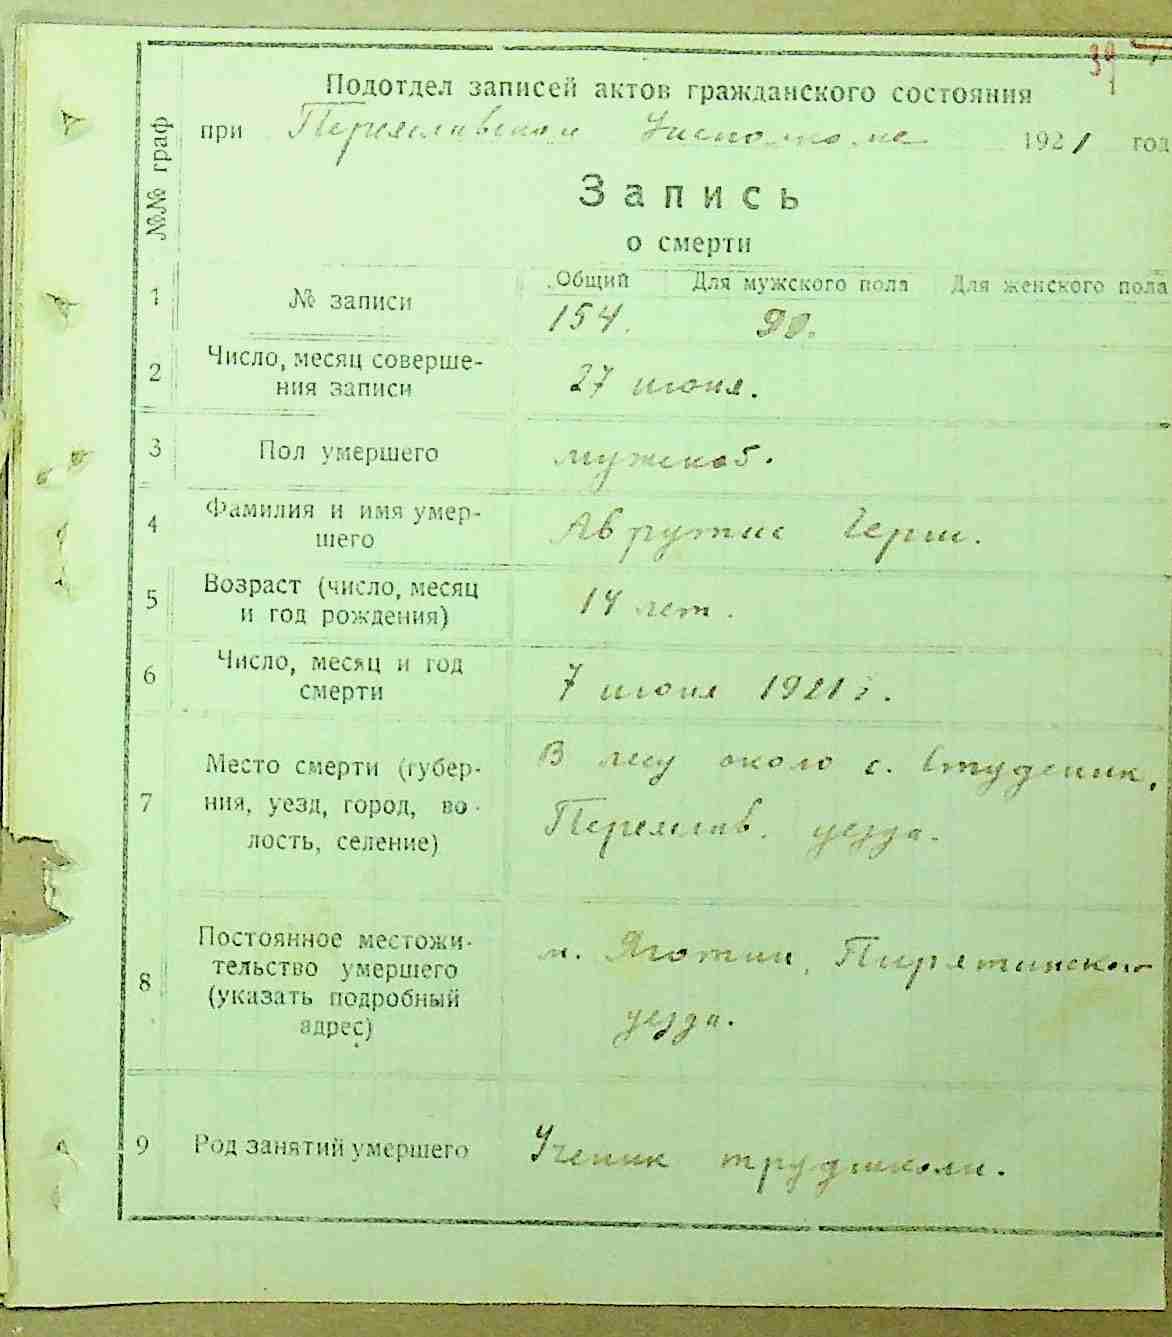 39
Подотдел записей актов гражданского состояния
при Переяславском Исполкоме 1921 год
№№ граф
Запись
о смерти
1 № записи Общий Для мужского пола Для женского пола
154. 90.
2 Число, месяц соверше-
ния записи 27 июня.
3 Пол умершего мужской.
4 Фамилия и имя умер-
шего Аврутис Герш.
5 Возраст (число, месяц
и год рождения) 14 лет.
6 Число, месяц и год
смерти 7 июня 1921 г.
7 Место смерти (губер-
ния, уезд, город, во-
лость, селение)
В лесу около с. Студеник.
Переяслав. уезда.
8 Постоянное местожи-
тельство умершего
(указать подробный
адрес)
м. Яготин, Пирятинского
уезда.
9 Род занятий умершего Ученик трудшколи.